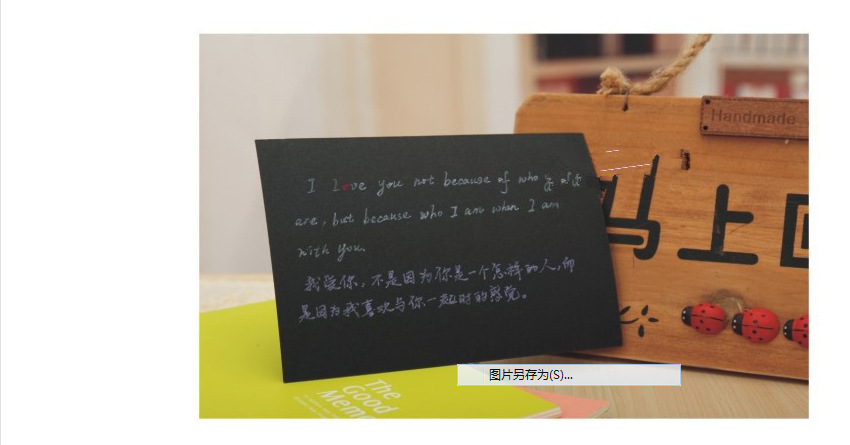 Handmade
I Love you not because of who
are, but because who I am when I am
with you.
我爱你，不是因为你是一个怎样的人，而
是因为我喜欢与你一起时的感觉。
马上回
The
Good
Memo
图片另存为(S)...